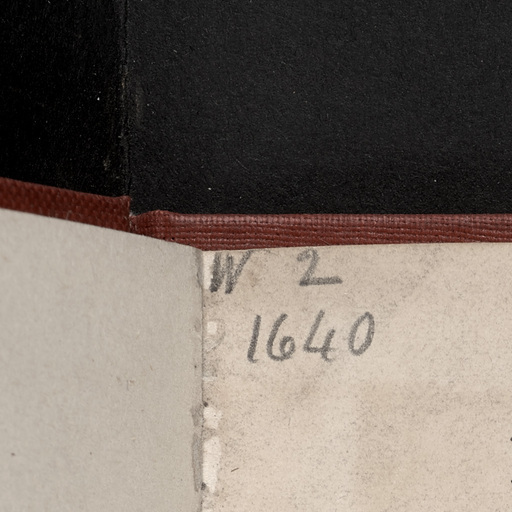 W 2
1640